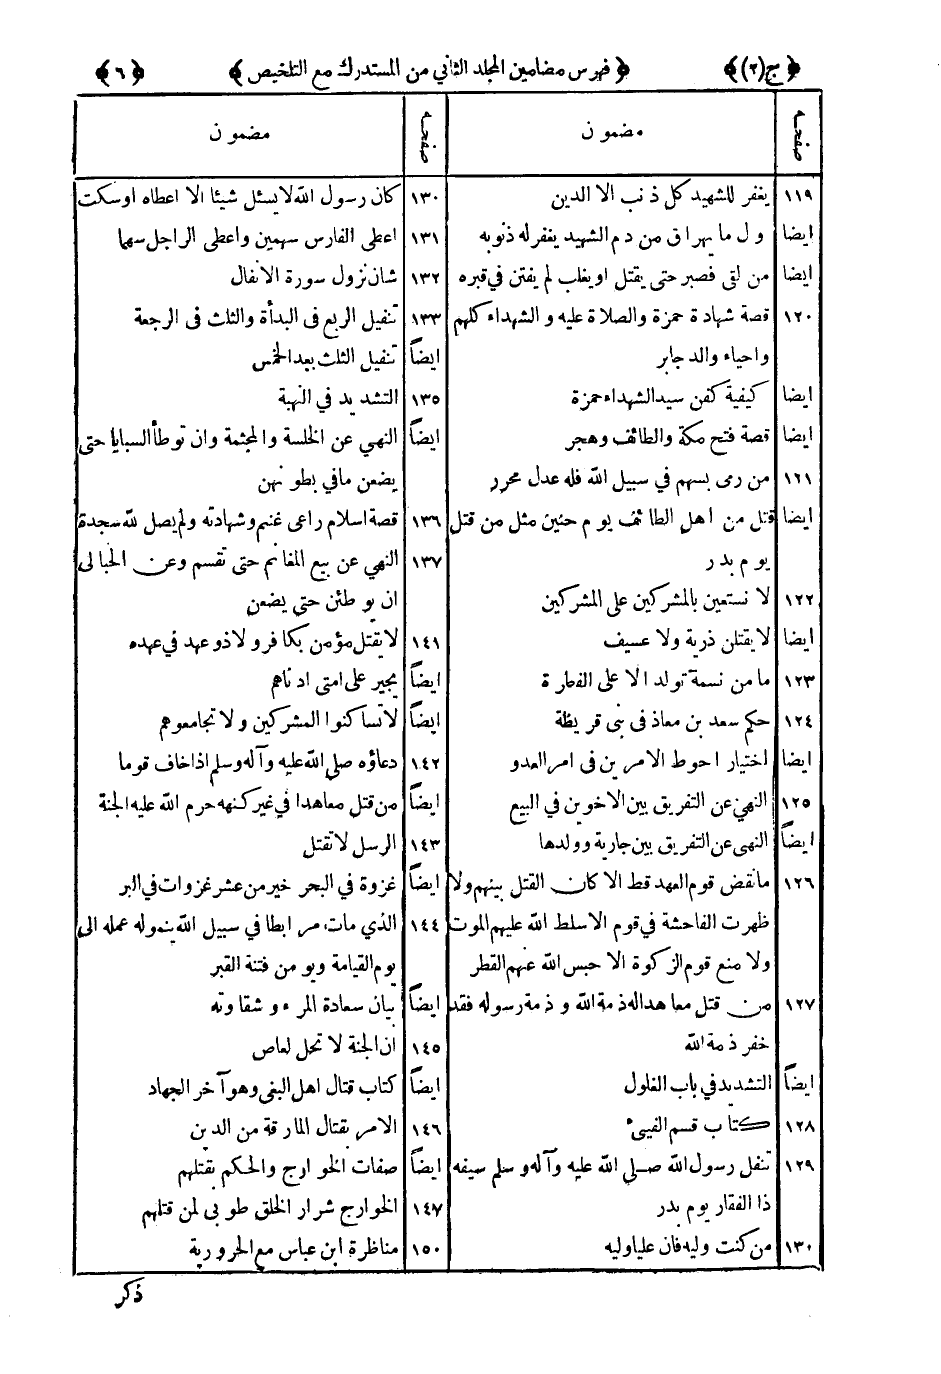 ﴿ ج(٢) ﴾ ﴿ فهرس مضامين المجلد الثاني من المستدرك مع التلخيص ﴾ ﴿ ٦ ﴾
صفحه مضمون
١١٩ يغفر للشهيد كل ذنب الا الدين
ايضا ول ما يهراق من دم الشهيد يغفر له ذنوبه
ايضا من لقى فصبر حتى يقتل او يغلب لم يفتن في قبره
١٢٠ قصة شهادة حمزة والصلاة عليه و الشهداء كلهم
واحياء والد جابر
ايضا كيفية كفن سيد الشهداء حمزة
ايضا قصة فتح مكة والطائف وهجر
١٢١ من رمى بسهم في سبيل الله فله عدل محرر
ايضا قتل من اهل الطائف يوم حنين مثل من قتل
يوم بدر
١٢٢ لا نستعين بالمشركين على المشركين
ايضا لا يقتلن ذرية ولا عسيف
١٢٣ ما من نسمة تولد الا على الفطرة
١٢٤ حكم سعد بن معاذ فى بنى قريظة
ايضا اختيار احوط الامرين فى امر العدو
١٢٥ النهي عن التفريق بين الاخوين في البيع
ايضاً النهى عن التفريق بين جارية وولدها
١٢٦ ما نقض قوم العهد قط الا كان القتل بينهم ولا
ظهرت الفاحشة في قوم الا سلط الله عليهم الموت
ولا منع قوم الزكوة الا حبس الله عنهم القطر
١٢٧ من قتل معاهدا له ذمة الله و ذمة رسوله فقد
خفر ذمة الله
ايضاً التشديد في باب الغلول
١٢٨ كتاب قسم الفيئ
١٢٩ تنفل رسول الله صلى الله عليه وآله وسلم سيفه
ذا الفقار يوم بدر
١٣٠ من كنت وليه فان عليا وليه
صفحه مضمون
١٣٠ كان رسول الله لا يسئل شيئا الا اعطاه او سكت
١٣١ اعطى الفارس سهمين واعطى الراجل سهما
١٣٢ شان نزول سورة الانفال
١٣٣ تنفيل الربع فى البدأة والثلث فى الرجعة
ايضاً تنفيل الثلث بعد الخمس
١٣٥ التشديد في النهبة
ايضاً النهي عن الخلسة والمجثمة وان توطأ السبايا حتى
يضعن ما في بطونهن
١٣٦ قصة اسلام راعى غنم وشهادته ولم يصل لله سجدة
١٣٧ النهي عن بيع المغانم حتى تقسم وعن الحبالى
ان يوطئن حتى يضعن
١٤١ لا يقتل مؤمن بكافر ولا ذو عهد في عهده
ايضاً يجير على امتى ادناهم
ايضاً لا تساكنوا المشركين ولا تجامعوهم
١٤٢ دعاؤه صلى الله عليه وآله وسلم اذا خاف قوما
ايضاً من قتل معاهدا في غير كنهه حرم الله عليه الجنة
١٤٣ الرسل لا تقتل
ايضاً غزوة في البحر خير من عشر غزوات في البر
١٤٤ الذي مات مرابطا في سبيل الله ينمو له عمله الى
يوم القيامة ويو من فتنة القبر
ايضاً بيان سعادة المرء و شقاوته
١٤٥ ان الجنة لا تحل لعاص
ايضاً كتاب قتال اهل البغى وهو آخر الجهاد
١٤٦ الامر بقتال المارقة من الدين
ايضاً صفات الخوارج والحكم بقتلهم
١٤٧ الخوارج شرار الخلق طوبى لمن قتلهم
١٥٠ مناظرة ابن عباس مع الحرورية
ذكر